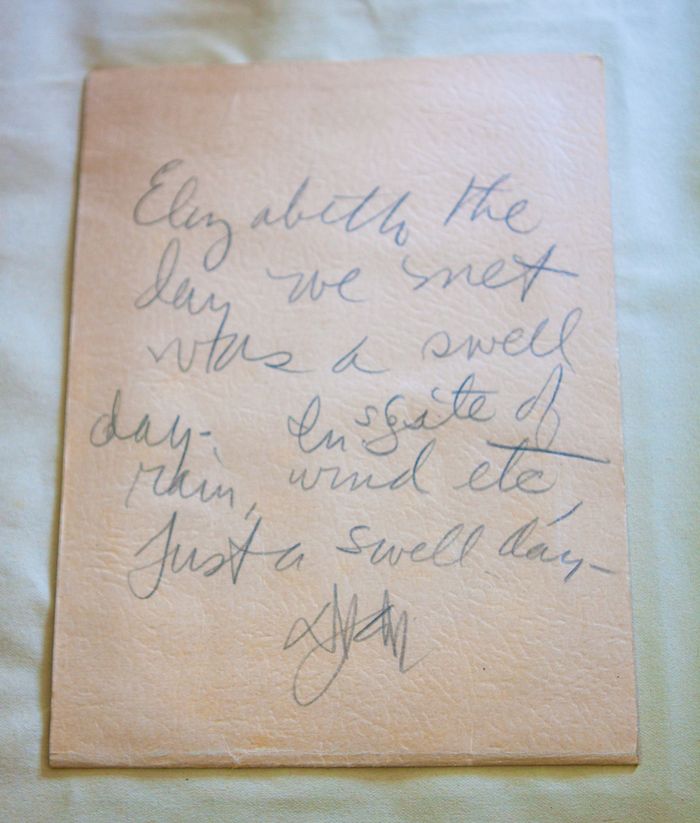 Elizabeth, the
day we met
was a swell
day-. In spite of
rain, wind etc,
Just a swell day-